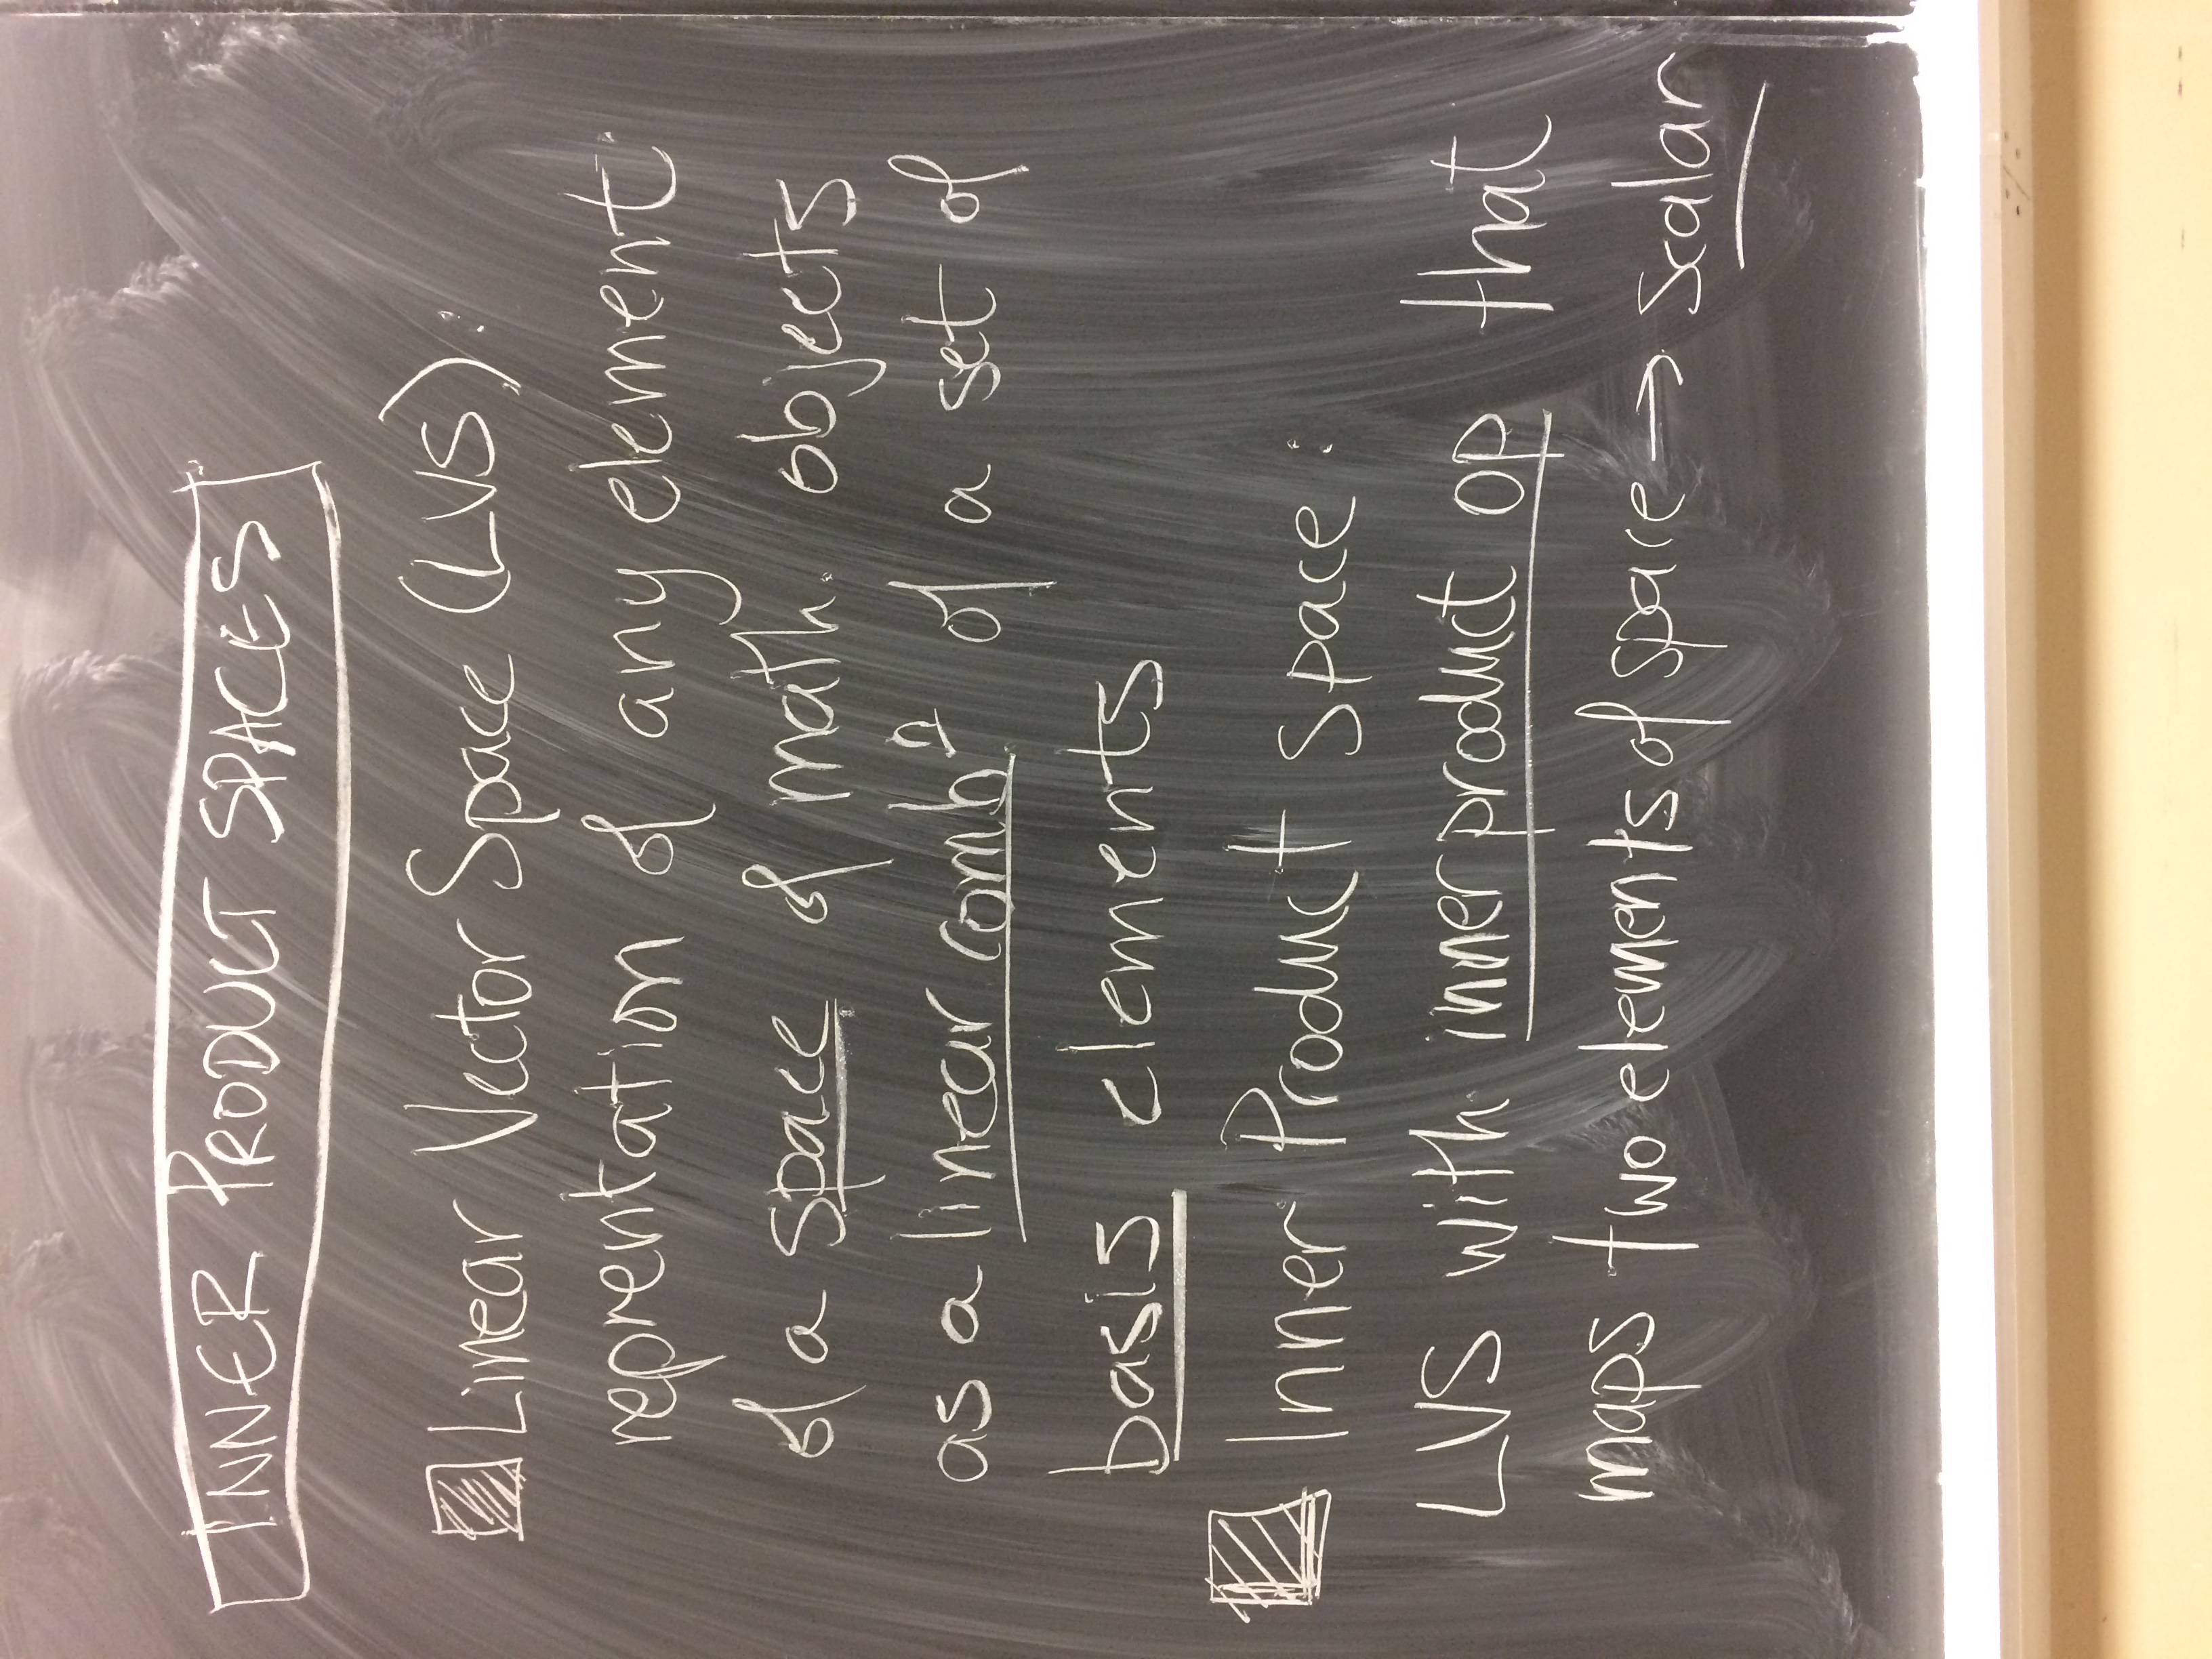 INNER PRODUCT SPACES
Linear Vector Space (LVS):
reprentation of any element
of a space of math. objects
as a linear combⁿ of a set of
basis elements
Inner Product Space:
LVS with inner product op that
maps two elements of space → scalar